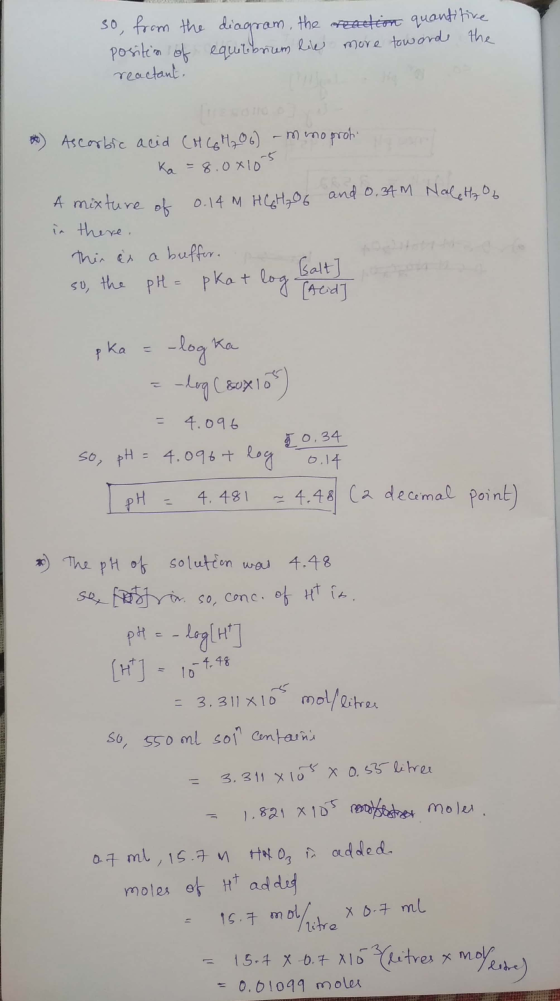 so, from the diagram, the reaction quantitive
position of equilibrium lie more towards the
reactant.
*) Ascorbic acid (HC6H7O6) - monoprot.
Ka = 8.0 × 10^-5
A mixture of 0.14 M HC6H7O6 and 0.34 M NaC6H7O6
is there.
This is a buffer.
so, the pH = pKa + log [Salt]/[Acid]
pKa = -log Ka
= -log (8.0×10^-5)
= 4.096
so, pH = 4.096 + log 0.34/0.14
pH = 4.481 ≈ 4.48 (2 decimal point)
*) The pH of solution was 4.48
so, conc. of H+ is.
pH = -log[H+]
[H+] = 10^-4.48
= 3.311 × 10^-5 mol/litres
so, 550 ml sol^n contains
= 3.311 × 10^-5 × 0.55 litres
= 1.821 × 10^-5 moles.
0.7 ml, 15.7 M HNO3 is added.
moles of H+ added
= 15.7 mol/litre × 0.7 ml
= 15.7 × 0.7 × 10^-3 (litres × mol/litre)
= 0.01099 moles